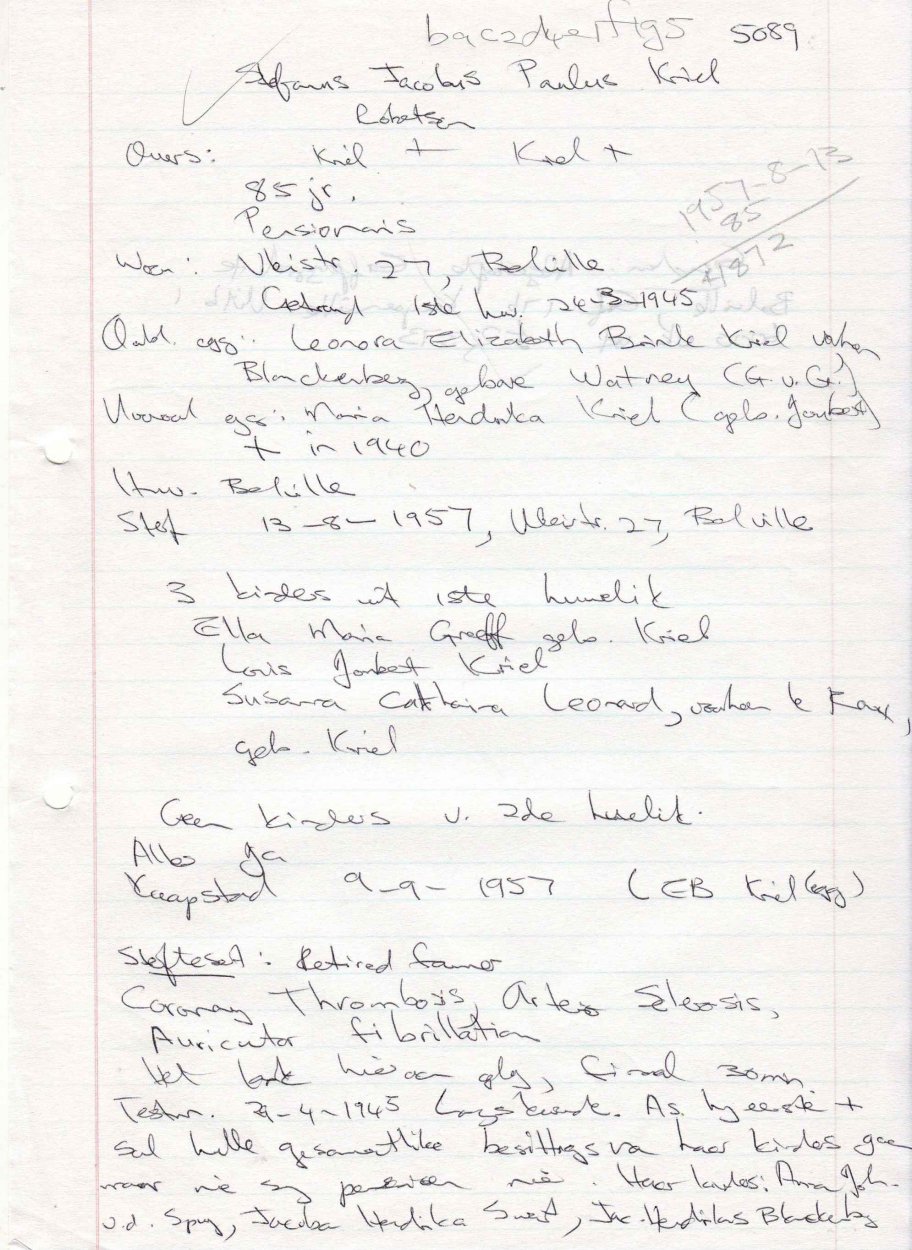 bac2d4erf1g5 5089
Stefanus Jacobus Paulus Kriel
Robertson
Ouers: Kriel + Kriel +
85 jr.
Pensionaris
1957-8-13
85
1872
Woon: Vleistr. 27, Belville
Getroud 1ste huw. 24-3-1945
Oorl. egg: Leonora Elizabeth Kriel vorheen
Blanckenberg, gebore Watney (G.v.G.)
Vooroorl egg: Maria Hendrika Kriel (geb. Joubert)
+ in 1940
Huw. Belville
Sterf 13-8-1957, Vleistr. 27, Belville
3 kinders uit 1ste huwelik
Ella Maria Graeff geb. Kriel
Louis Joubert Kriel
Susanna Catharina Leonard, voorheen le Roux,
geb. Kriel
Geen kinders v. 2de huwelik.
Albei ja
Kaapstad 9-9-1957 (EB Kriel (egg)
Sterfteset: Retired farmer
Coronary Thrombosis, Arterio Sclerosis,
Auricular fibrillation
Het lank hieraan gely, finaal 30 min.
Testm. -4-1945 As hy eerste +
sal hulle gesamentlike besittings va haar kinders gaan
maar nie sy pensioen nie. Haar kinders: Anna Joh.
v.d. Spuy, Jacoba Hendrika Swart, Jac. Hendrikus Blanckenberg